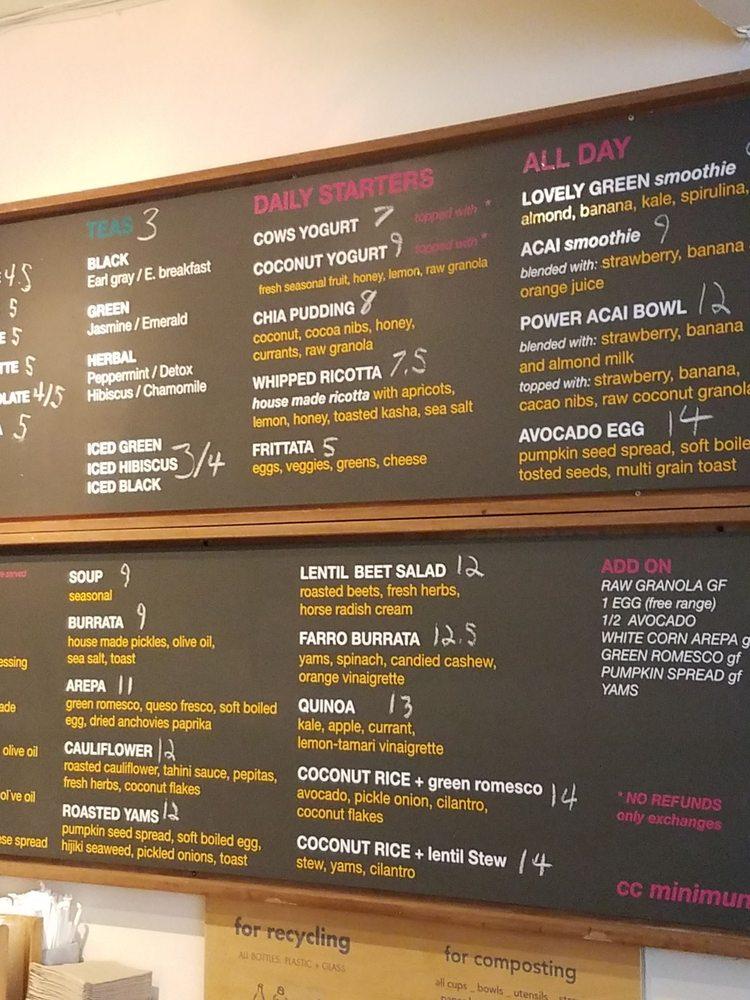 4.5
5
E 5
TTE 5
OLATE 4/5
A 5
TEAS 3
BLACK
Earl gray / E. breakfast
GREEN
Jasmine / Emerald
HERBAL
Peppermint / Detox
Hibiscus / Chamomile
ICED GREEN
ICED HIBISCUS 3/4
ICED BLACK
DAILY STARTERS
COWS YOGURT 7 topped with *
COCONUT YOGURT 9 topped with *
fresh seasonal fruit, honey, lemon, raw granola
CHIA PUDDING 8
coconut, cocoa nibs, honey,
currants, raw granola
WHIPPED RICOTTA 7.5
house made ricotta with apricots,
lemon, honey, toasted kasha, sea salt
FRITTATA 5
eggs, veggies, greens, cheese
ALL DAY
LOVELY GREEN smoothie
almond, banana, kale, spirulina,
ACAI smoothie 9
blended with: strawberry, banana
orange juice
POWER ACAI BOWL 12
blended with: strawberry, banana
and almond milk
topped with: strawberry, banana,
cacao nibs, raw coconut granola
AVOCADO EGG 14
pumpkin seed spread, soft boile
tosted seeds, multi grain toast
re served
essing
ade
olive oil
ol've oil
ese spread
SOUP 9
seasonal
BURRATA 9
house made pickles, olive oil,
sea salt, toast
AREPA 11
green romesco, queso fresco, soft boiled
egg, dried anchovies paprika
CAULIFLOWER 12
roasted cauliflower, tahini sauce, pepitas,
fresh herbs, coconut flakes
ROASTED YAMS 12
pumpkin seed spread, soft boiled egg,
hijiki seaweed, pickled onions, toast
LENTIL BEET SALAD 12
roasted beets, fresh herbs,
horse radish cream
FARRO BURRATA 12.5
yams, spinach, candied cashew,
orange vinaigrette
QUINOA 13
kale, apple, currant,
lemon-tamari vinaigrette
COCONUT RICE + green romesco 14
avocado, pickle onion, cilantro,
coconut flakes
COCONUT RICE + lentil Stew 14
stew, yams, cilantro
ADD ON
RAW GRANOLA GF
1 EGG (free range)
1/2 AVOCADO
WHITE CORN AREPA g
GREEN ROMESCO gf
PUMPKIN SPREAD gf
YAMS
* NO REFUNDS
only exchanges
cc minimun
for recycling
ALL BOTTLES, PLASTIC + GLASS
for composting
all cups _ bowls _ utensils _